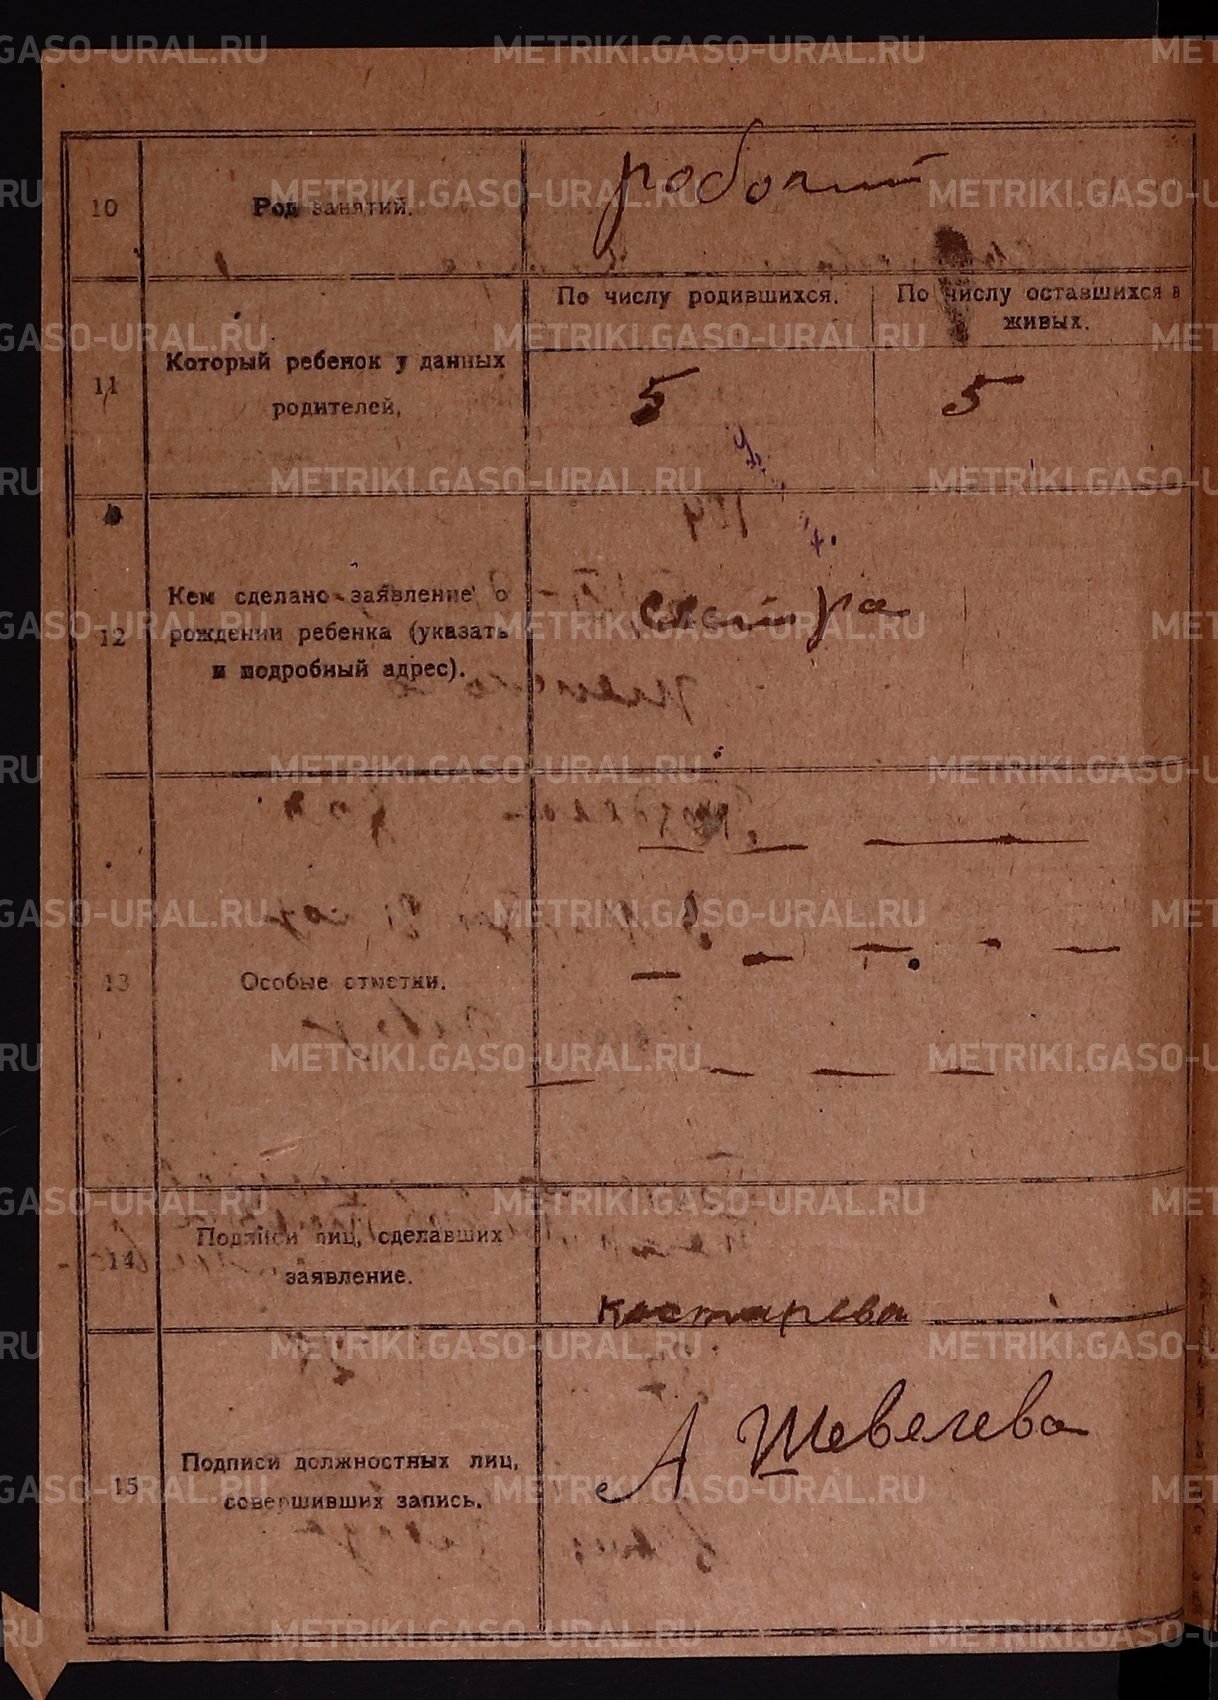 10
Род занятий.
роботий
11
Который ребенок у данных
родителей,
По числу родившихся.
По числу оставшихся в
живых.
5
5
12
Кем сделано заявление о
рождении ребенка (указать
и подробный адрес).
сестра
13
Особые отметки.
14
Подписи лиц, сделавших
заявление.
Костырева
15
Подписи должностных лиц,
совершивших запись.
А Шевелева
METRIKI.GASO-URAL.RU